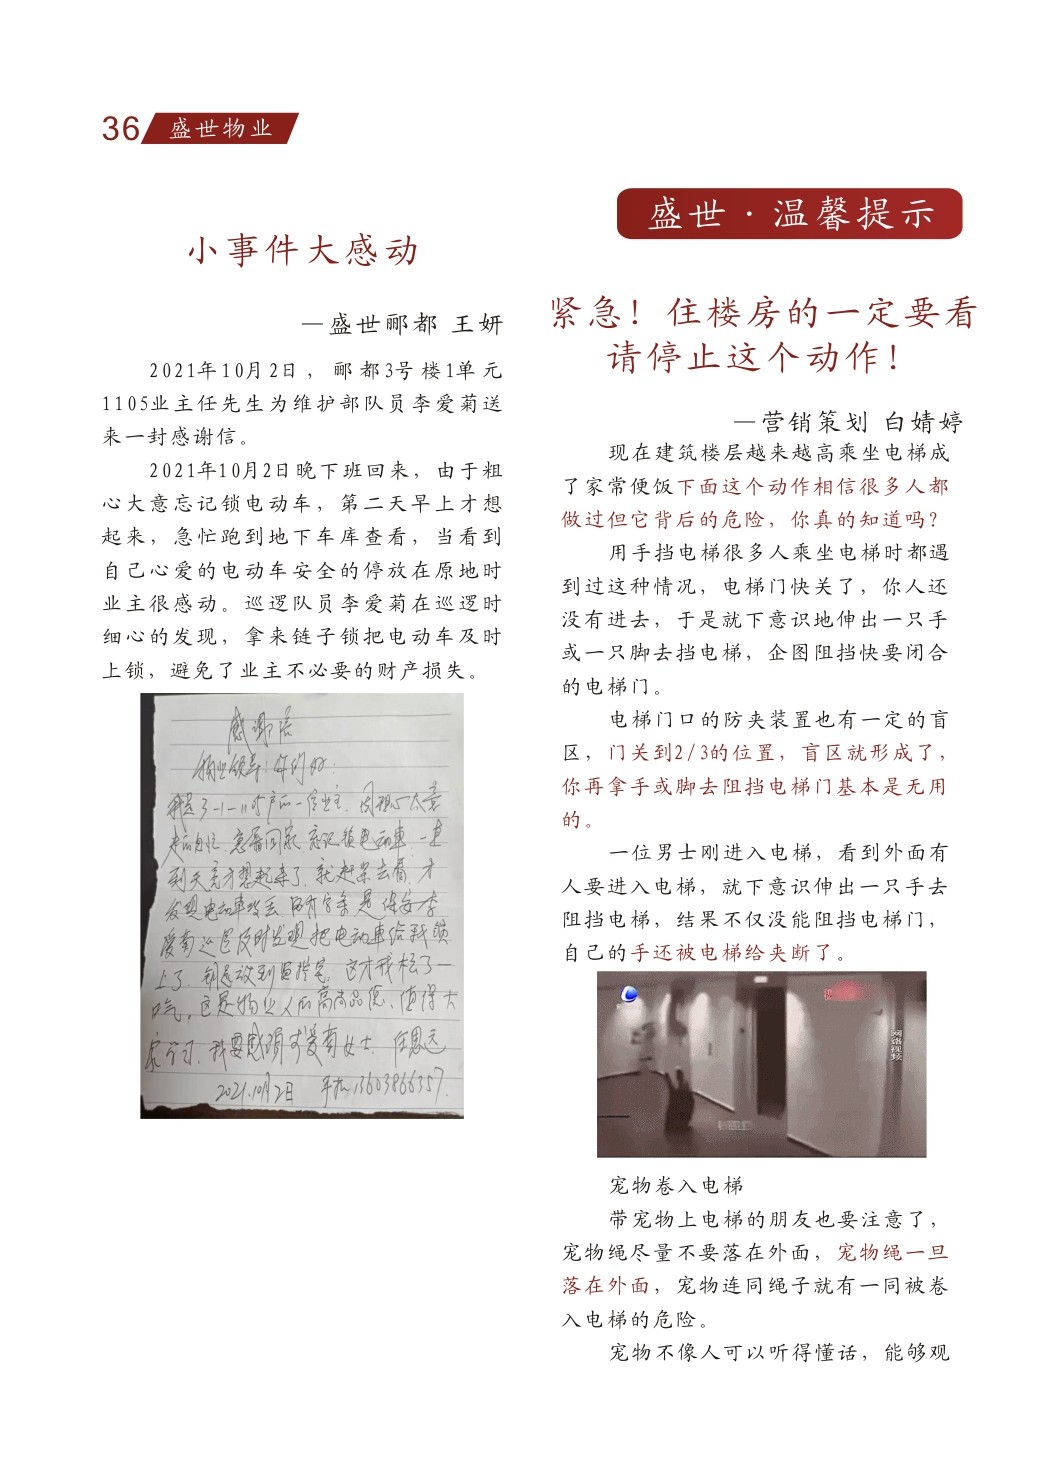 36 盛世物业
小事件大感动
—盛世郦都 王妍
2021年10月2日，郦都3号楼1单元
1105业主任先生为维护部队员李爱菊送
来一封感谢信。
2021年10月2日晚下班回来，由于粗
心大意忘记锁电动车，第二天早上才想
起来，急忙跑到地下车库查看，当看到
自己心爱的电动车安全的停放在原地时
业主很感动。巡逻队员李爱菊在巡逻时
细心的发现，拿来链子锁把电动车及时
上锁，避免了业主不必要的财产损失。
感谢信
物业领导：你们好：
到天亮才想起来了，就赶紧去看，才
爱菊巡逻及时发现把电动車给我锁
上了，钥匙放到监控室，这才我松了一
口气，这是物业人的高尚品德，值得大
2021.10月2日 手机13603866357.
盛世·温馨提示
紧急！住楼房的一定要看
请停止这个动作！
—营销策划 白婧婷
现在建筑楼层越来越高乘坐电梯成
了家常便饭下面这个动作相信很多人都
做过但它背后的危险，你真的知道吗？
用手挡电梯很多人乘坐电梯时都遇
到过这种情况，电梯门快关了，你人还
没有进去，于是就下意识地伸出一只手
或一只脚去挡电梯，企图阻挡快要闭合
的电梯门。
电梯门口的防夹装置也有一定的盲
区，门关到2/3的位置，盲区就形成了，
你再拿手或脚去阻挡电梯门基本是无用
的。
一位男士刚进入电梯，看到外面有
人要进入电梯，就下意识伸出一只手去
阻挡电梯，结果不仅没能阻挡电梯门，
自己的手还被电梯给夹断了。
网络视频
宠物卷入电梯
带宠物上电梯的朋友也要注意了，
宠物绳尽量不要落在外面，宠物绳一旦
落在外面，宠物连同绳子就有一同被卷
入电梯的危险。
宠物不像人可以听得懂话，能够观